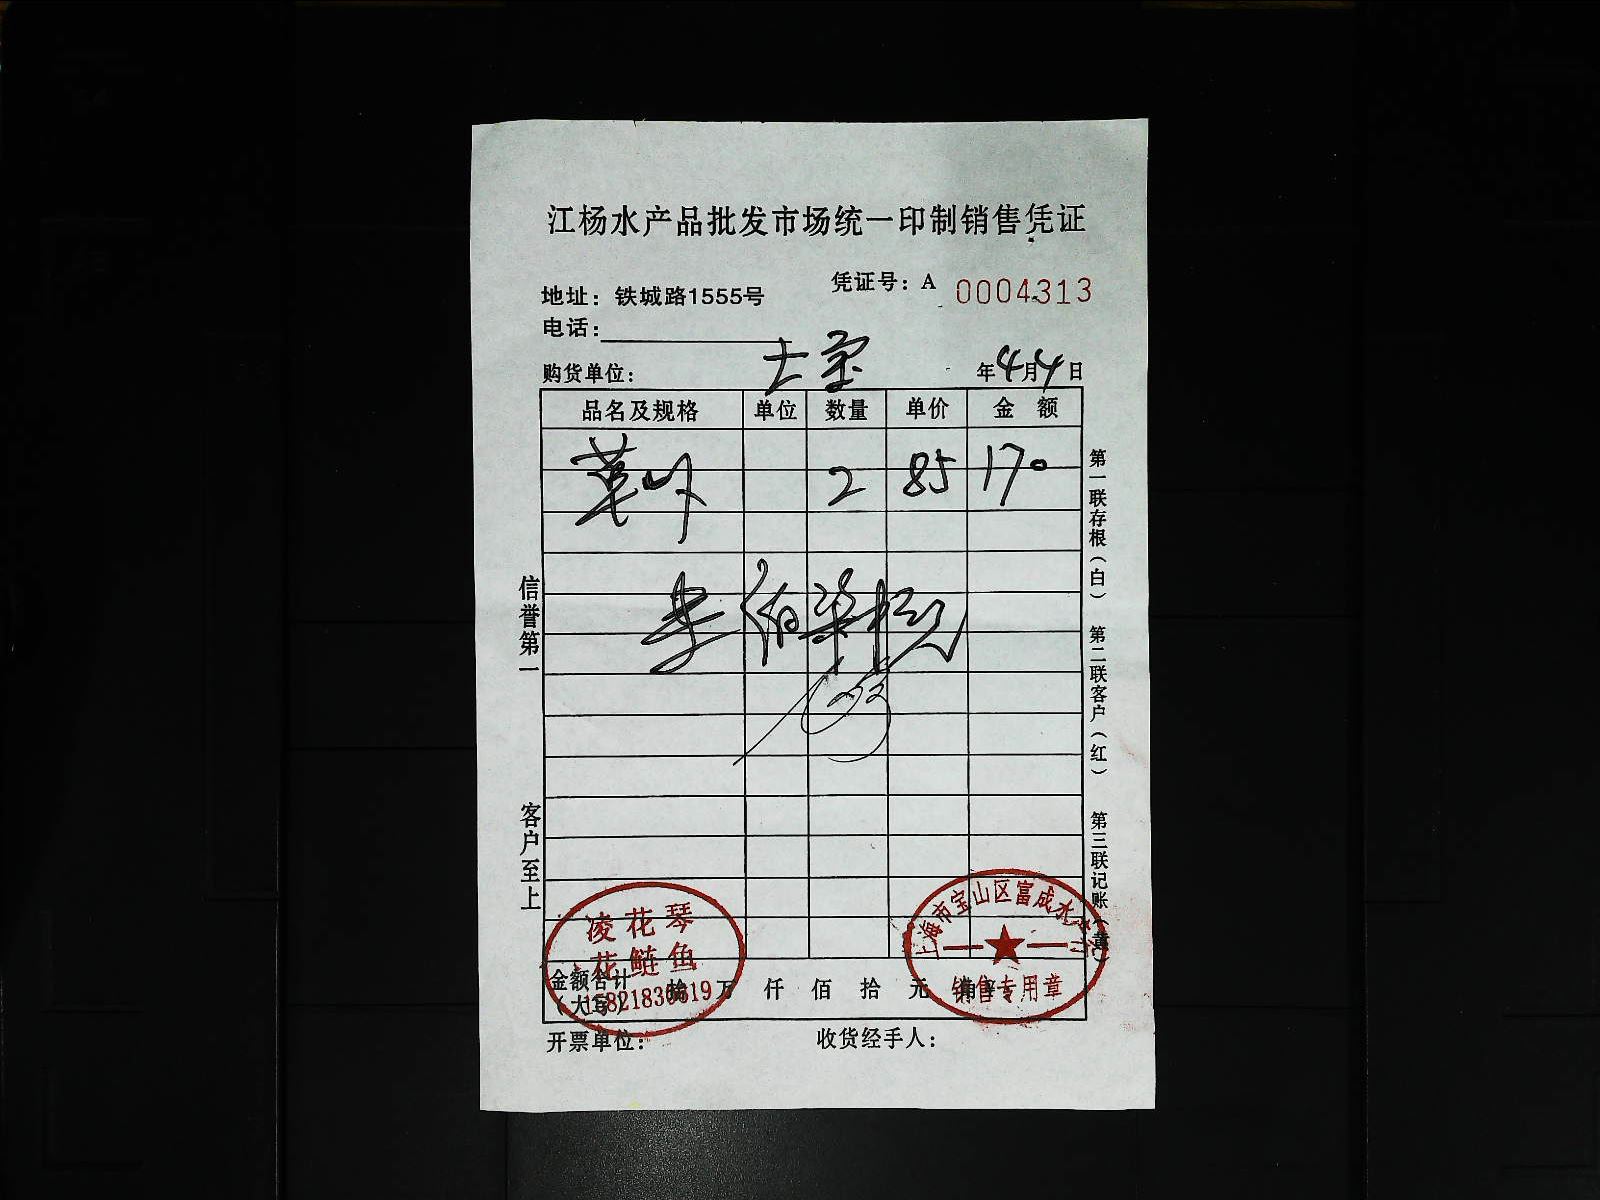 江杨水产品批发市场统一印制销售凭证
凭证号：A 0004313
地址：铁城路1555号
电话：
购货单位： 年4月4日
品名及规格 单位 数量 单价 金额
2 85 170
信誉第一
客户至上
第一联存根（白）
第二联客户（红）
第三联记账（黄）
凌花琴
花鲢鱼
上海市宝山区富成水
销售专用章
金额合计
（大写） 拾 万 仟 佰 拾 元 角
开票单位： 收货经手人：